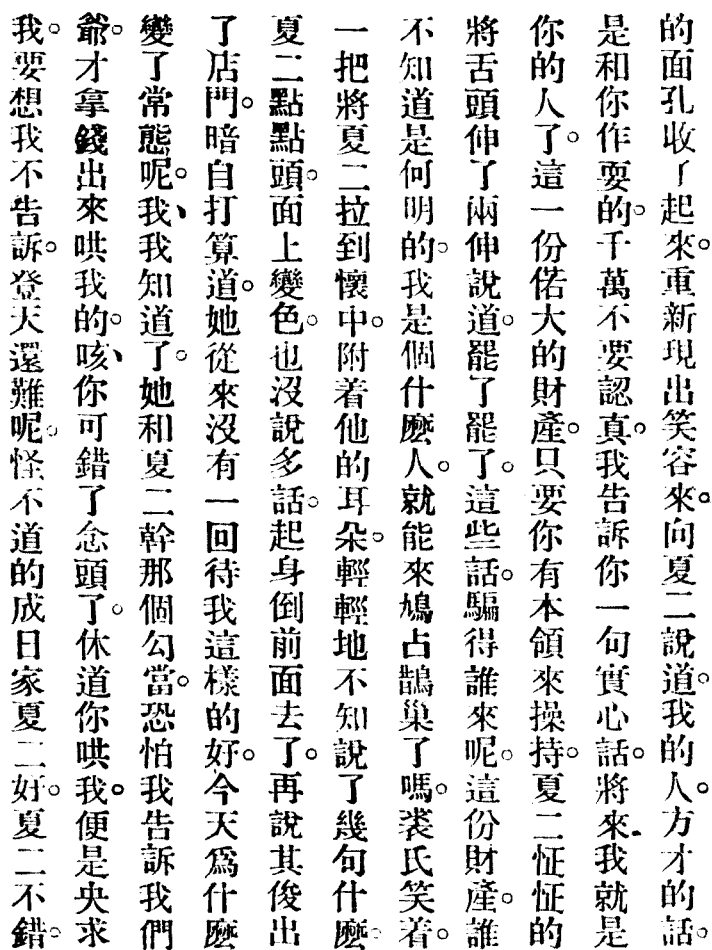 的面孔收了起來。重新現出笑容來。向夏二說道。我的人。方才的話。
是和你作耍的。千萬不要認真。我告訴你一句實心話。將來。我就是
你的人了。這一份偌大的財產。只要你有本領來操持。夏二怔怔的
將舌頭伸了兩伸說道。罷了罷了。這些話。騙得誰來呢。這份財產。誰
不知道是何明的。我是個什麼人。就能來鳩占鵲巢了嗎。裘氏笑着。
一把將夏二拉到懷中。附着他的耳朵。輕輕地不知說了幾句什麼。
夏二點點頭。面上變色。也沒說多話。起身倒前面去了。再說其俊出
了店門。暗自打算道。她從來沒有一回待我這樣的好。今天爲什麼
變了常態呢。我、我知道了。她和夏二幹那個勾當。恐怕我告訴我們
爺。才拿錢出來哄我的。咳、你可錯了念頭了。休道你哄我。便是央求
我。要想我不告訴。登天還難呢。怪不道的成日家夏二好。夏二不錯。